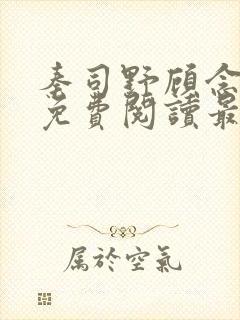 秦司野顾念
免費閱讀最
属於空氣